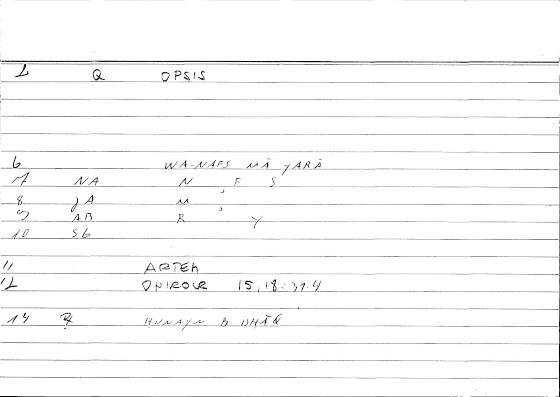 1 Q OPSIS
6 WA-NAFS MĀ YARĀ
7 NA N F S
8 JA M ,
9 AB R , Y
10 56
11 ARTEM
12 ONIROCR 15,18 = 31.4
14 R HUNAYN B ISHĀQ